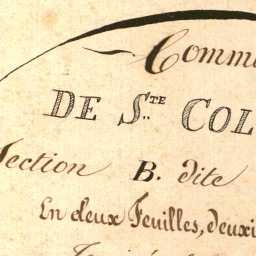 Commu
DE S.TE COL
Section B. dite
En deux Feuilles, deuxi